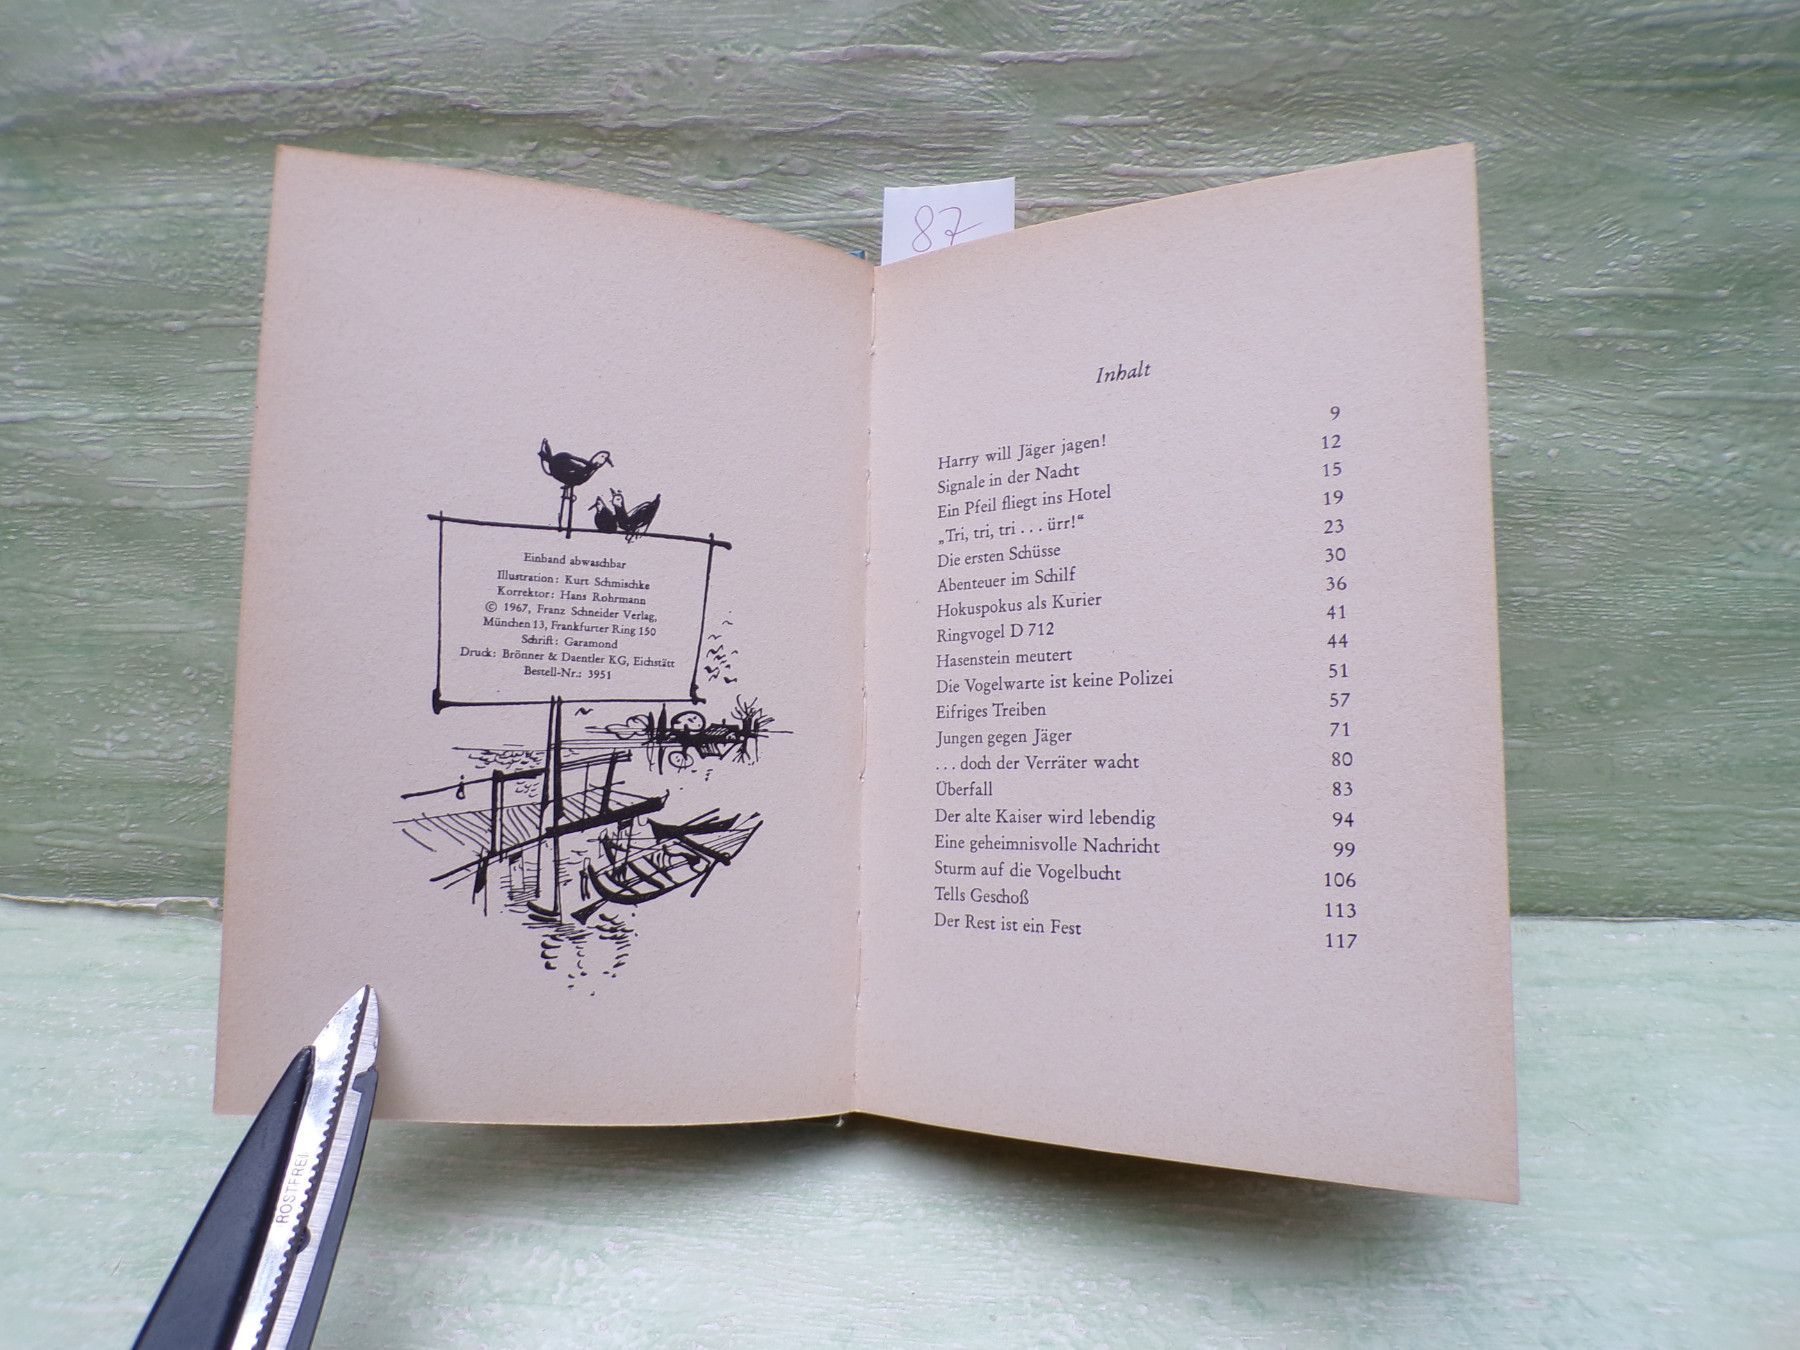 87
Einband abwaschbar
Illustration: Kurt Schmischke
Korrektor: Hans Rohrmann
© 1967, Franz Schneider Verlag,
München 13, Frankfurter Ring 150
Schrift: Garamond
Druck: Brönner & Daentler KG, Eichstätt
Bestell-Nr.: 3951
Inhalt
Harry will Jäger jagen! 9
Signale in der Nacht 12
Ein Pfeil fliegt ins Hotel 15
„Tri, tri, tri . . . ürr!“ 19
Die ersten Schüsse 23
Abenteuer im Schilf 30
Hokuspokus als Kurier 36
Ringvogel D 712 41
Hasenstein meutert 44
Die Vogelwarte ist keine Polizei 51
Eifriges Treiben 57
Jungen gegen Jäger 71
. . . doch der Verräter wacht 80
Überfall 83
Der alte Kaiser wird lebendig 94
Eine geheimnisvolle Nachricht 99
Sturm auf die Vogelbucht 106
Tells Geschoß 113
Der Rest ist ein Fest 117
ROSTFREI